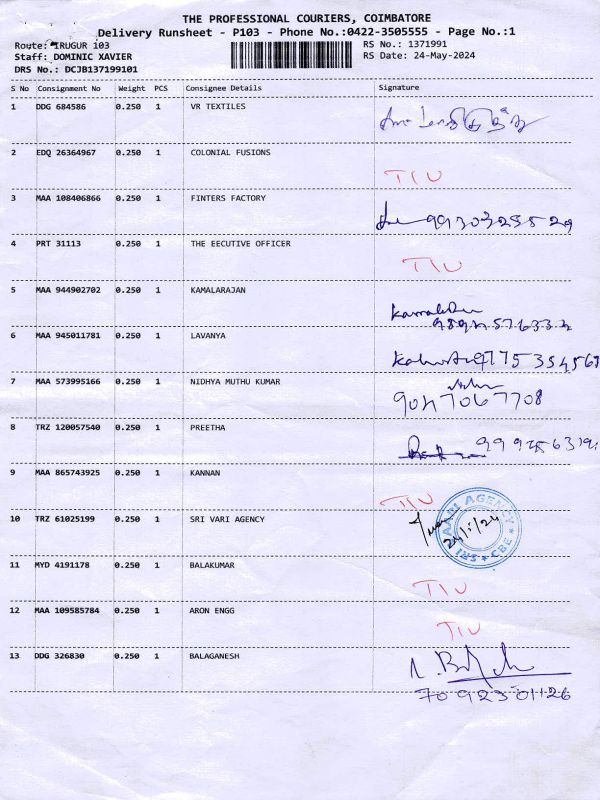 THE PROFESSIONAL COURIERS, COIMBATORE
Delivery Runsheet - P103 - Phone No.:0422-3505555 - Page No.:1
Route: IRUGUR i03 RS No.: 1371991
Staff: DOMINIC XAVIER RS Date: 24-May-2024
DRS No.: DCJB137199101
S No Consignment No Weight PCS Consignee Details Signature
1 DDG 684586 0.250 1 VR TEXTILES
2 EDQ 26364967 0.250 1 COLONIAL FUSIONS
TIU
3 MAA 108406866 0.250 1 FINTERS FACTORY
4 PRT 31113 0.250 1 THE EECUTIVE OFFICER
TIU
5 MAA 944902702 0.250 1 KAMALARAJAN
6 MAA 945011781 0.250 1 LAVANYA
7 MAA 573995166 0.250 1 NIDHYA MUTHU KUMAR
8 TRZ 120057540 0.250 1 PREETHA
9 MAA 865743925 0.250 1 KANNAN
TIU
10 TRZ 61025199 0.250 1 SRI VARI AGENCY
24/5/24
11 MYD 4191178 0.250 1 BALAKUMAR
TIU
12 MAA 109585784 0.250 1 ARON ENGG
TIU
13 DDG 326830 0.250 1 BALAGANESH
7092301126